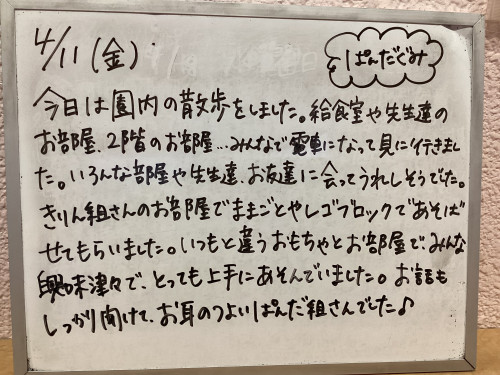 4/11(金)
ぱんだぐみ
今日は園内の散歩をしました。給食室や先生達の
お部屋、2階のお部屋…みんなで電車になって見に行きまし
た。いろんな部屋や先生達、お友達に会ってうれしそうでした。
きりん組さんのお部屋でままごとやレゴブロックであそば
せてもらいました。いつもと違うおもちゃとお部屋で、みんな
興味津々で、とっても上手にあそんでいました。お話も
しっかり聞けて、お耳のつよいぱんだ組さんでした♪